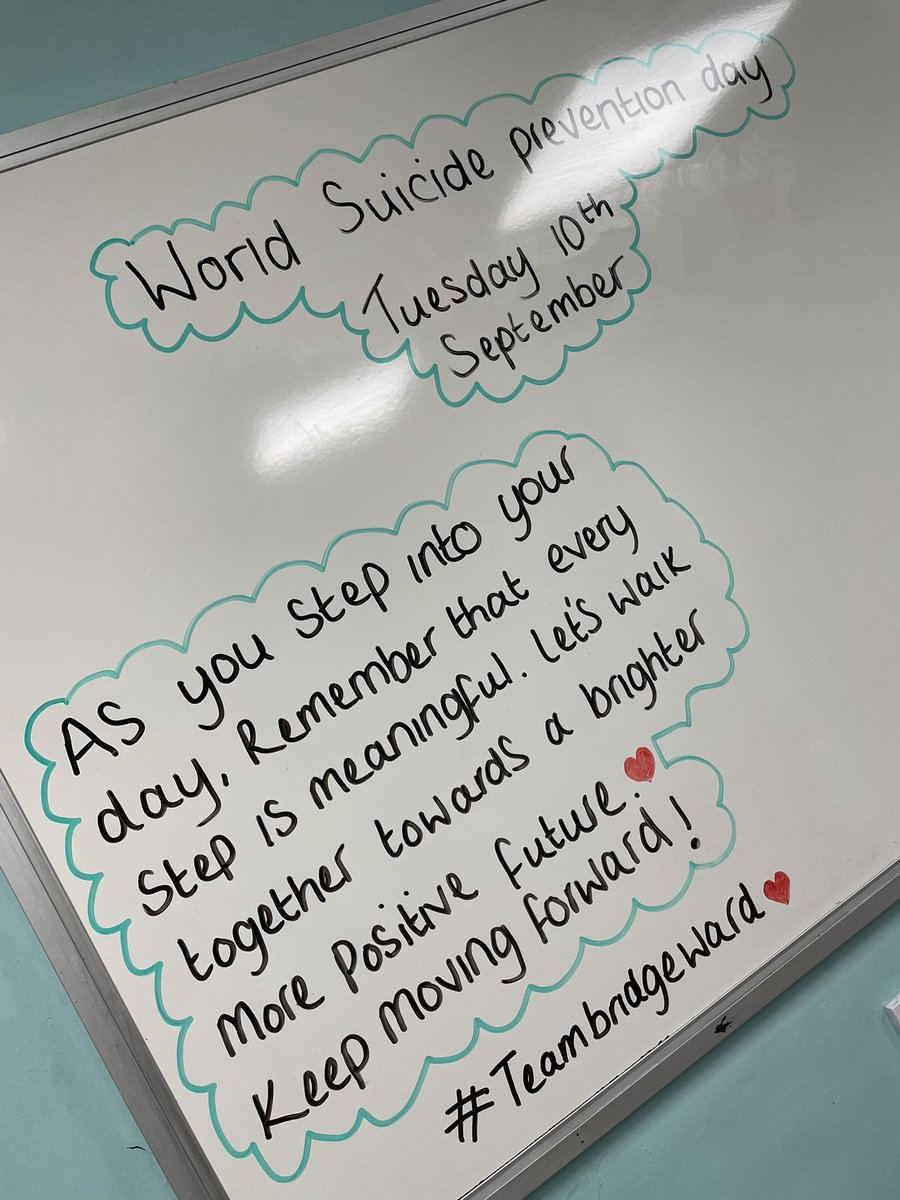 World Suicide prevention day
Tuesday 10th
September
As you step into your
day, Remember that every
step is meaningful. Let's walk
together towards a brighter
more positive future.
Keep moving forward!
#Teambridgeward